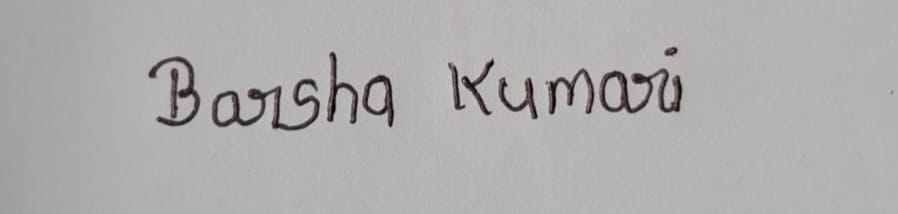 Barsha Kumari